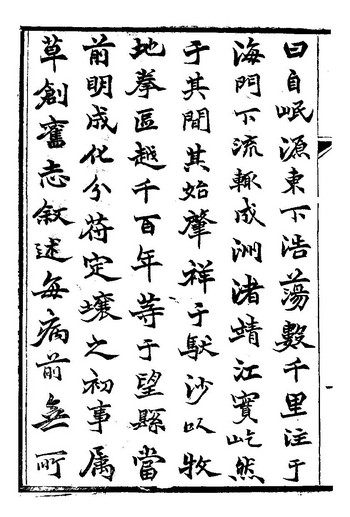 曰自岷源東下浩蕩數千里注于
海門下流輒成洲渚靖江實屹然
于其間其始肇祥于馱沙以牧
地拳區越千百年等于望縣當
前明成化分符定壤之初事属
草創舊志叙述每病前無所